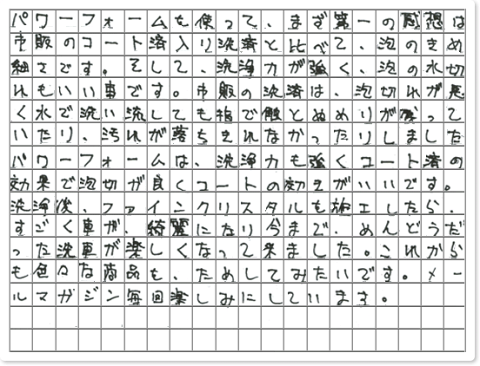 パワーフォームを使って、まず第一の感想は
市販のコート済入り洗済と比べて、泡のきめ
細さです。そして、洗浄力が強く、泡の水切
れもいい事です。市販の洗済は、泡切れが悪
く水で洗い流しても指で触とぬめりが残って
いたり、汚れが落ちきれなかったりしました
パワーフォームは、洗浄力も強くコート済の
効果で泡切が良くコートの効きがいいです。
洗浄後、ファインクリスタルも施工したら、
すごく車が、綺麗になり今まで、めんどうだ
った洗車が楽しくなって来ました。これから
も色々な商品も、ためしてみたいです。メー
ルマガジン毎回楽しみにしています。